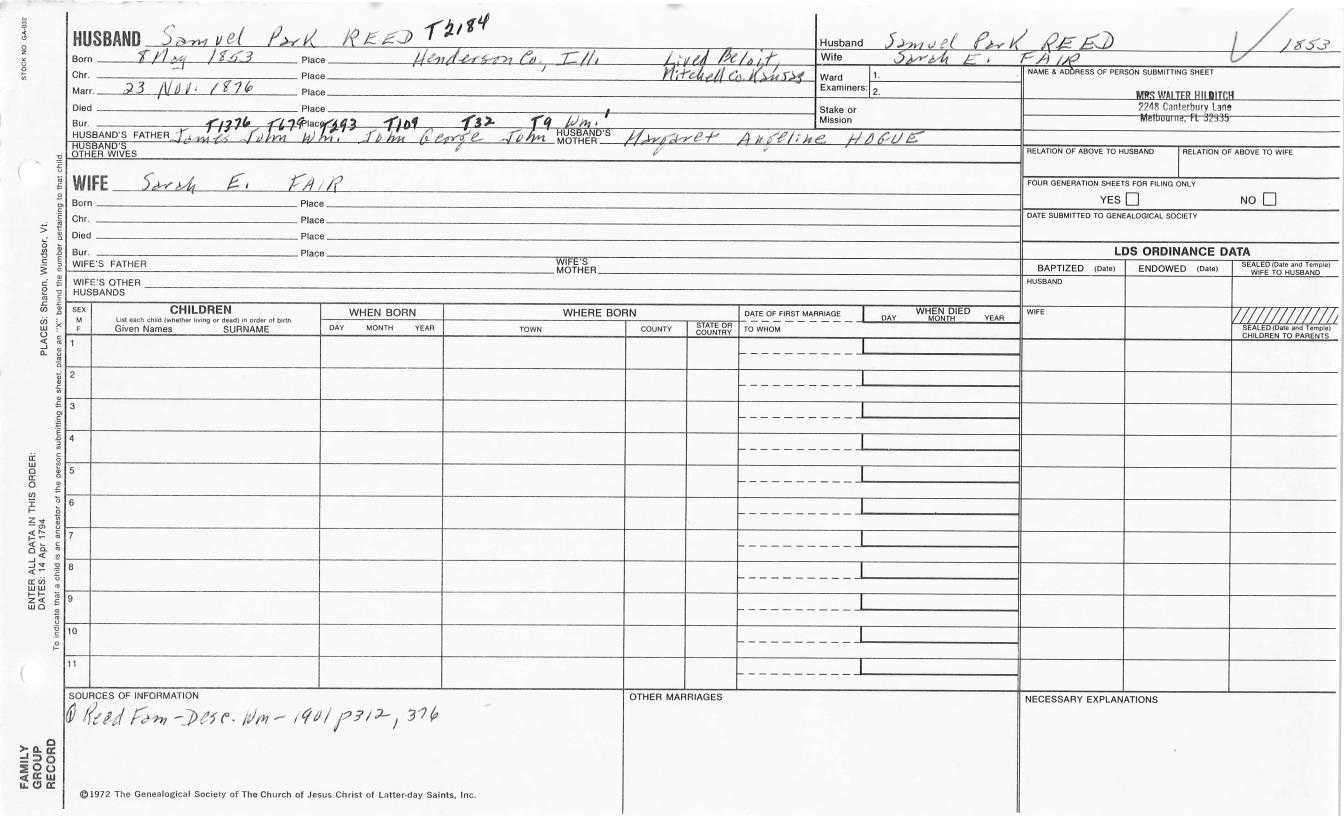 STOCK NO. GA-032
HUSBAND Samuel Park REED T2184
Born 8 May 1853 Place Henderson Co., Ill. Lived Beloit,
Chr. Place Mitchell Co. Kansas
Marr. 23 Nov. 1876 Place
Died Place
Bur. Place
T1376 T679 T293 T109 T32 T9 Wm.1
HUSBAND'S FATHER James John Wm. John George John HUSBAND'S MOTHER Margaret Angeline HOGUE
HUSBAND'S OTHER WIVES
Husband Samuel Park REED 1853
Wife Sarah E. FAIR
Ward Examiners: 1.
2.
Stake or Mission
NAME & ADDRESS OF PERSON SUBMITTING SHEET
MRS WALTER HILDITCH
2248 Canterbury Lane
Melbourne, FL 32935
RELATION OF ABOVE TO HUSBAND RELATION OF ABOVE TO WIFE
FOUR GENERATION SHEETS FOR FILING ONLY
YES NO
DATE SUBMITTED TO GENEALOGICAL SOCIETY
WIFE Sarah E. FAIR
Born Place
Chr. Place
Died Place
Bur. Place
WIFE'S FATHER WIFE'S MOTHER
WIFE'S OTHER HUSBANDS
LDS ORDINANCE DATA
BAPTIZED (Date) ENDOWED (Date) SEALED (Date and Temple) WIFE TO HUSBAND
HUSBAND
WIFE
SEALED (Date and Temple) CHILDREN TO PARENTS
SEX M F
CHILDREN
List each child (whether living or dead) in order of birth
Given Names SURNAME
WHEN BORN
DAY MONTH YEAR
WHERE BORN
TOWN COUNTY STATE OR COUNTRY
DATE OF FIRST MARRIAGE
TO WHOM
WHEN DIED
DAY MONTH YEAR
1
2
3
4
5
6
7
8
9
10
11
SOURCES OF INFORMATION
① Reed Fam - Desc. Wm - 1901 p312, 376
OTHER MARRIAGES
NECESSARY EXPLANATIONS
©1972 The Genealogical Society of The Church of Jesus Christ of Latter-day Saints, Inc.
FAMILY GROUP RECORD
ENTER ALL DATA IN THIS ORDER:
DATES: 14 Apr 1794
PLACES: Sharon, Windsor, Vt.
To indicate that a child is an ancestor of the person submitting the sheet, place an "X" behind the number pertaining to that child.